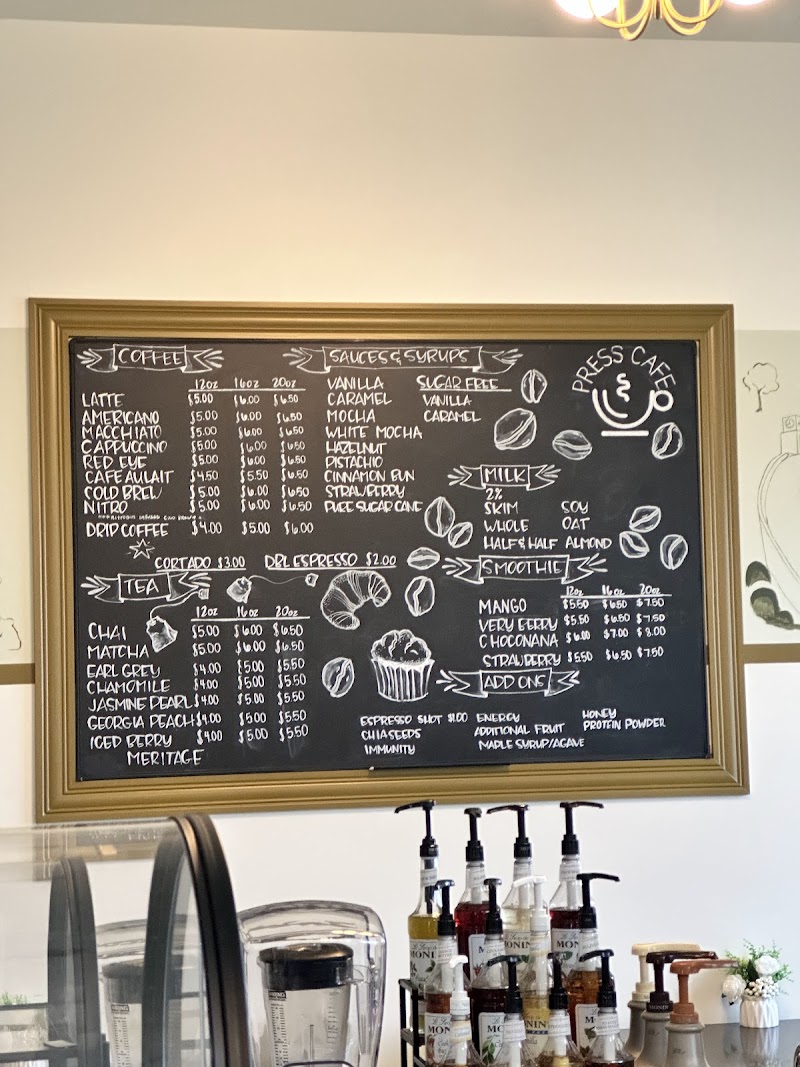 COFFEE
12oz 16oz 20oz
LATTE $5.00 $6.00 $6.50
AMERICANO $5.00 $6.00 $6.50
MACCHIATO $5.00 $6.00 $6.50
CAPPUCCINO $5.00 $6.00 $6.50
RED EYE $5.00 $6.00 $6.50
CAFE AU LAIT $4.50 $5.50 $6.50
COLD BREW $5.00 $6.00 $6.50
NITRO $5.00 $6.00 $6.50
DRIP COFFEE $4.00 $5.00 $6.00
CORTADO $3.00 DBL ESPRESSO $2.00
SAUCES & SYRUPS
VANILLA
CARAMEL
MOCHA
WHITE MOCHA
HAZELNUT
PISTACHIO
CINNAMON BUN
STRAWBERRY
PURE SUGAR CANE
SUGAR FREE
VANILLA
CARAMEL
PRESS CAFE
MILK
2%
SKIM SOY
WHOLE OAT
HALF & HALF ALMOND
TEA
12oz 16oz 20oz
CHAI $5.00 $6.00 $6.50
MATCHA $5.00 $6.00 $6.50
EARL GREY $4.00 $5.00 $5.50
CHAMOMILE $4.00 $5.00 $5.50
JASMINE PEARL $4.00 $5.00 $5.50
GEORGIA PEACH $4.00 $5.00 $5.50
ICED BERRY $4.00 $5.00 $5.50
MERITAGE
SMOOTHIE
12oz 16oz 20oz
MANGO $5.50 $6.50 $7.50
VERY BERRY $5.50 $6.50 $7.50
CHOCONANA $6.00 $7.00 $8.00
STRAWBERRY $5.50 $6.50 $7.50
ADD ONS
ESPRESSO SHOT $1.00 ENERGY HONEY
CHIA SEEDS ADDITIONAL FRUIT PROTEIN POWDER
IMMUNITY MAPLE SYRUP/AGAVE
MONIN